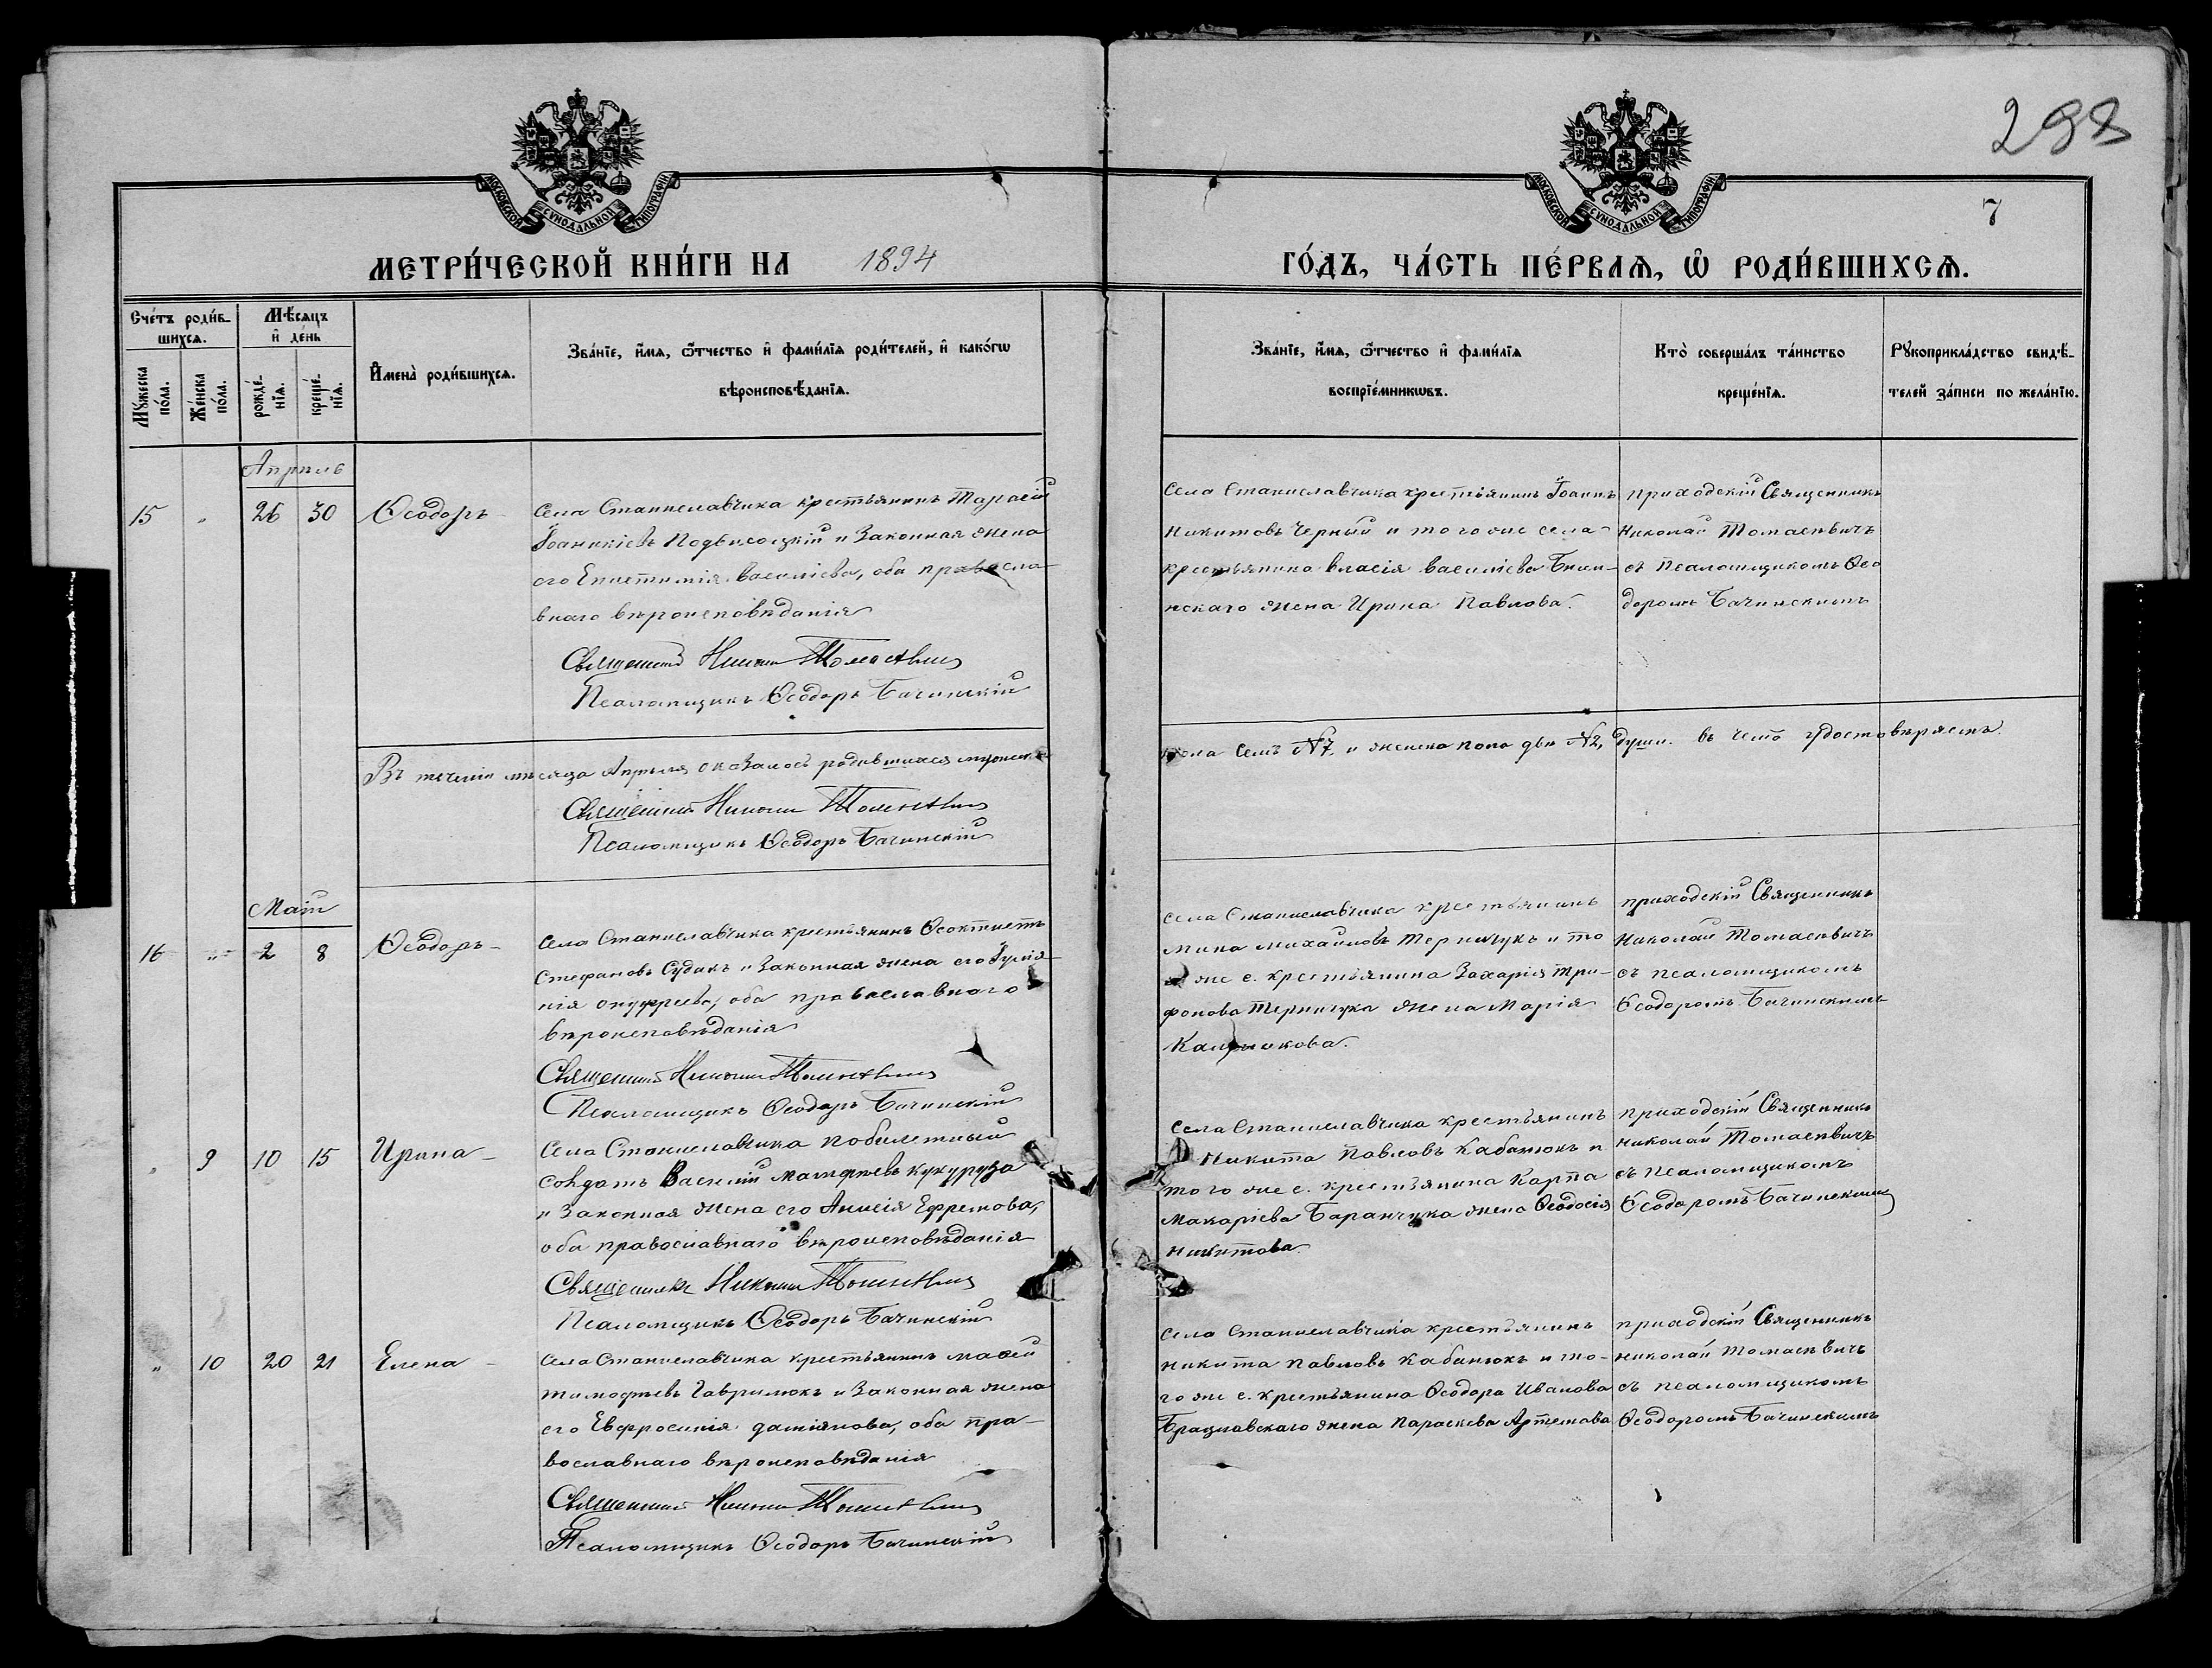 298
7
МОСКОВСКОЙ СѴНОДАЛЬНОЙ ТИПОГРАФІИ
МОСКОВСКОЙ СѴНОДАЛЬНОЙ ТИПОГРАФІИ
МЕТРИ́ЧЕСКОЙ КНИ́ГИ НА 1894
ГО́ДЪ, ЧА́СТЬ ПЕ́РВАѦ, Ѡ҆ РОДИ́ВШИХСѦ.
Сче́тъ роди́в-
шихсѧ.
Мꙋжеска по́ла.
Же́нска по́ла.
Мѣ́сяцъ
и҆ де́нь
рожде́-нїѧ.
креще́-нїѧ.
И҆мена̀ роди́вшихсѧ.
Зва́нїе, и҆́мѧ, ѻ҆́тчество и҆ фами́лїѧ роди́телей, и҆ како́гѡ
вѣроисповѣ́данїѧ.
Зва́нїе, и҆́мѧ, ѻ҆́тчество и҆ фами́лїѧ
воспрїе́мникѡвъ.
Кто̀ соверша́лъ та́инство
креще́нїѧ.
Рꙋкоприкла́дство свидѣ́-
телей за́писи по жела́нїю.
Апрѣль
15 „ 26 30 Ѳеодоръ
Села Станиславчика крестьянинъ Тарасій
Іоанникіевъ Подвисоцкій и Законная жена
его Епистимія Василіева, оба правосла-
внаго вѣроисповѣданія
Священникъ Николай Томасевичъ
Псаломщикъ Ѳеодоръ Бачинскій
Села Станиславчика крестьянинъ Іоаннъ
Никитовъ Черный и того же села
крестьянина Власія Василіева
нскаго жена Ирина Павлова.
приходскій Священникъ
Николай Томасевичъ
съ Псаломщикомъ Ѳео
доромъ Бачинскимъ
Въ теченіи мѣсяца Апрѣля оказалось родившихся мужеска
пола семь №7, и женска пола двѣ №2, души. въ чемъ удостовѣряемъ
Священникъ Николай Томасевичъ
Псаломщикъ Ѳеодоръ Бачинскій
Май
16 „ 2 8 Ѳеодоръ
Села Станиславчика крестьянинъ Ѳеоктистъ
Стефановъ Судакъ и Законная жена его Іулія-
нія Онуфріева, оба православнаго
вѣроисповѣданія
Священникъ Николай Томасевичъ
Псаломщикъ Ѳеодоръ Бачинскій
Села Станиславчика крестьянинъ
Мина Михайловъ Терничукъ и то
же с. крестьянина Захарія Три-
фонова Терничука жена Марія
приходскій Священникъ
Николай Томасевичъ
съ псаломщикомъ
Ѳеодоромъ Бачинскимъ
„ 9 10 15 Ирина
Села Станиславчика побилетный
Солдатъ Василій Матфіевъ Кукуруза
и Законная жена его Анисія Ефремова,
оба православнаго вѣроисповѣданія
Священникъ Николай Томасевичъ
Псаломщикъ Ѳеодоръ Бачинскій
Села Станиславчика крестьянинъ
Никита Павловъ Кабанюкъ и
того же с. крестьянина Карпа
Макаріева Баранчука жена Ѳеодосія
Никитова.
приходскій Священникъ
Николай Томасевичъ
съ псаломщикомъ
Ѳеодоромъ Бачинскимъ
„ 10 20 21 Елена
Села Станиславчика крестьянинъ Мовсей
Тимофѣевъ Гаврилюкъ и Законная жена
его Евфросинія Даміянова, оба пра-
вославнаго вѣроисповѣданія
Священникъ Николай Томасевичъ
Псаломщикъ Ѳеодоръ Бачинскій
Села Станиславчика крестьянинъ
Никита Павловъ Кабанюкъ и то-
го же с. крестьянина Ѳеодора Иванова
Брацлавскаго жена Параскева Артемова
приходскій Священникъ
Николай Томасевичъ
съ псаломщикомъ
Ѳеодоромъ Бачинскимъ